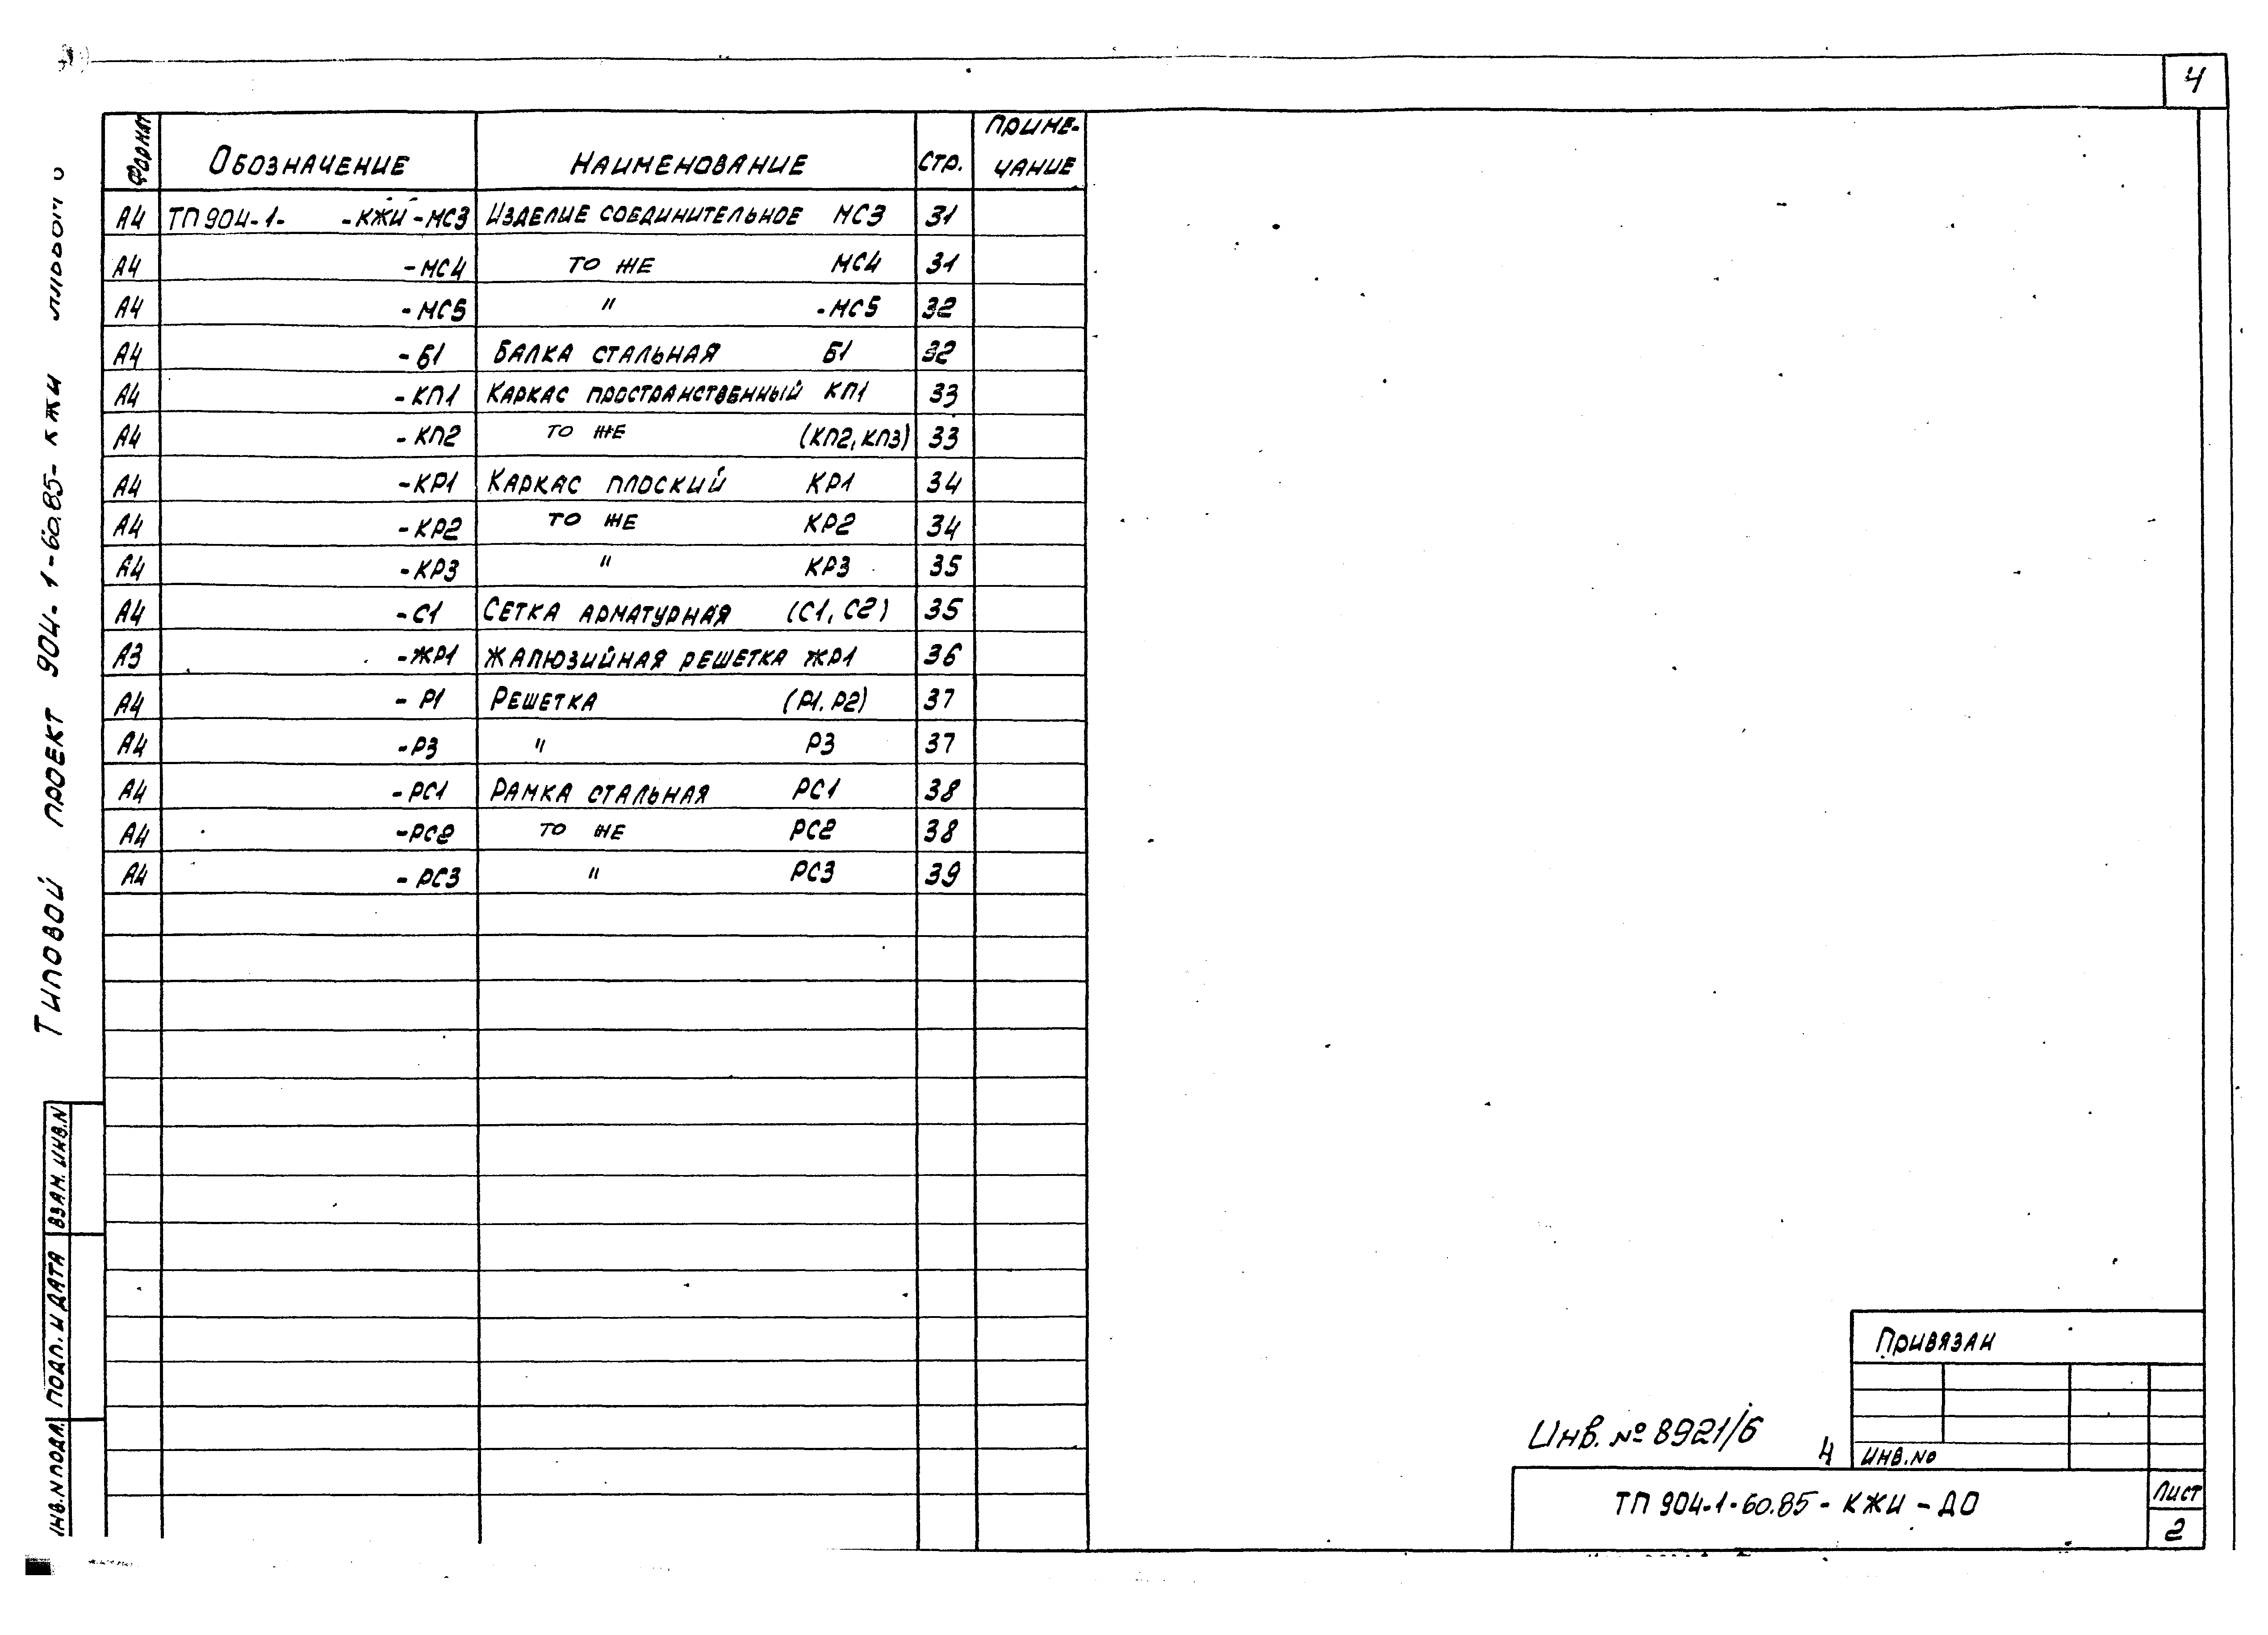 4
Формат Обозначение Наименование Стр. Приме-чание
А4 ТП 904-1- -КЖИ-МС3 Изделие соединительное МС3 31
А4 -МС4 то же МС4 31
А4 -МС5 " -МС5 32
А4 -Б1 Балка стальная Б1 32
А4 -КП1 Каркас пространственный КП1 33
А4 -КП2 то же (КП2, КП3) 33
А4 -КР1 Каркас плоский КР1 34
А4 -КР2 то же КР2 34
А4 -КР3 " КР3 35
А4 -С1 Сетка арматурная (С1, С2) 35
А3 -ЖР1 Жалюзийная решетка ЖР1 36
А4 - Р1 Решетка (Р1. Р2) 37
А4 -Р3 " Р3 37
А4 -РС1 Рамка стальная РС1 38
А4 -РС2 то же РС2 38
А4 - РС3 " РС3 39
Типовой проект 904-1-60.85-КЖИ
Взам. инв. N
Подп. и дата
Инв. N подл.
Привязан
Инв. No
Инв. № 8921/6
4
ТП 904-1-60.85-КЖИ-ДО
Лист
2